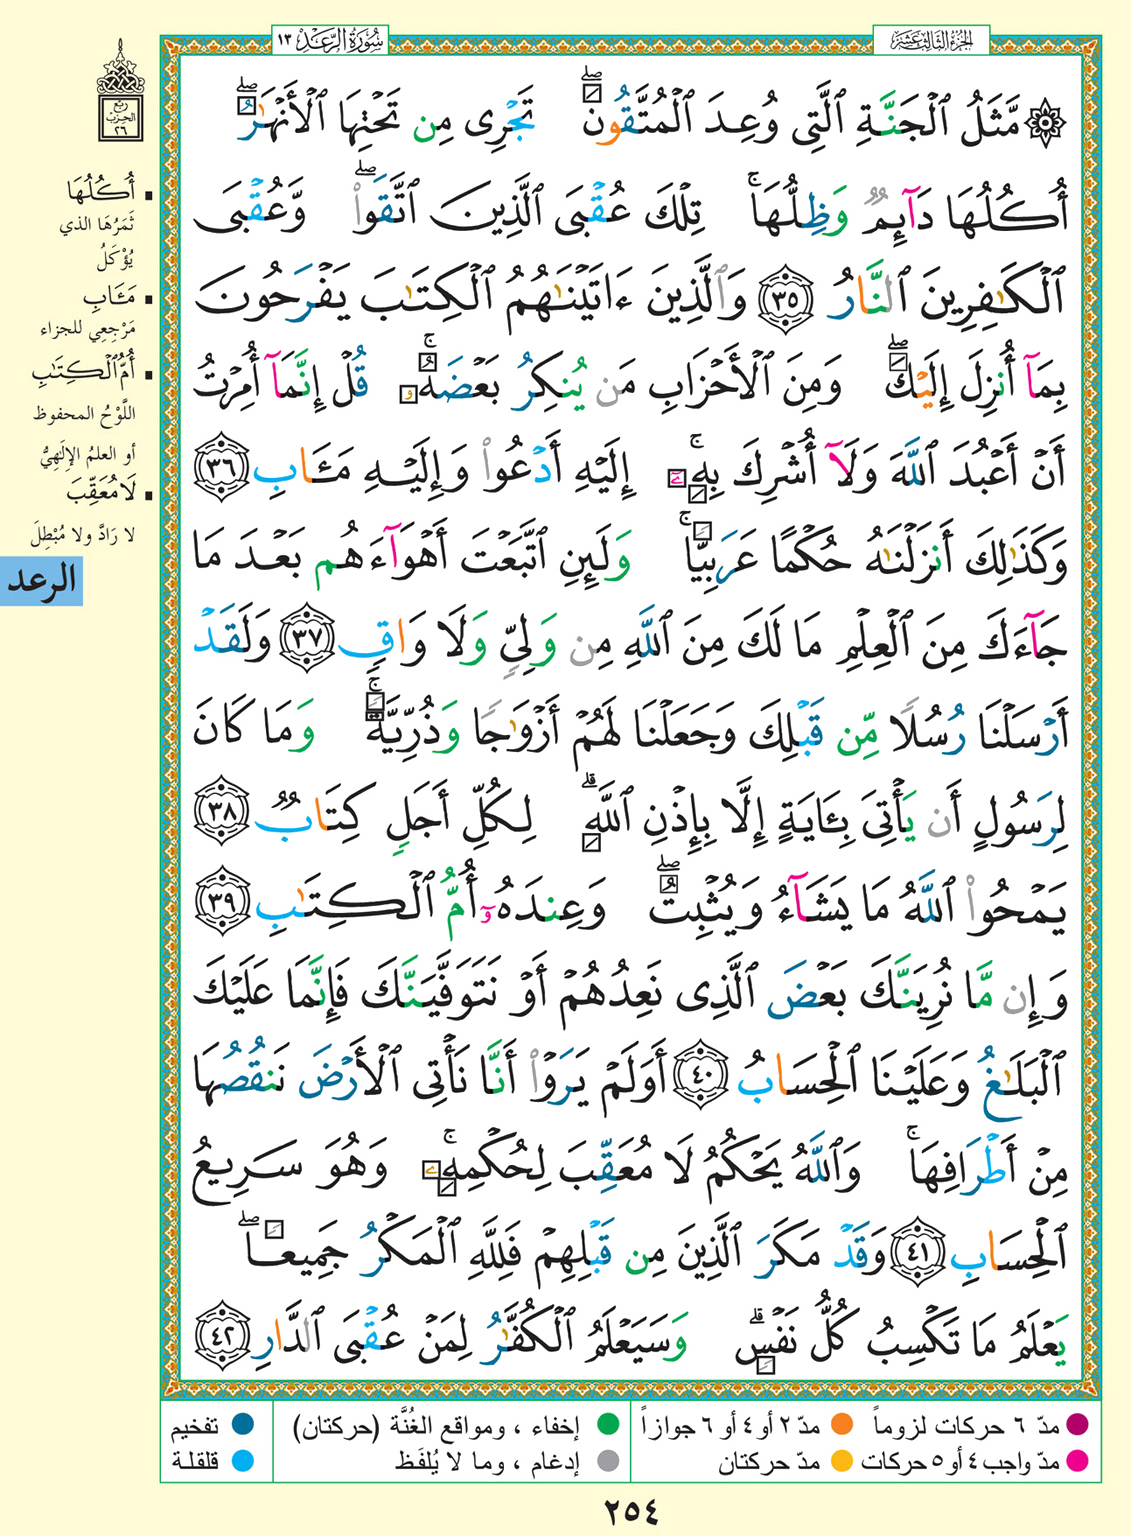 سُورَةُ الرَّعْدِ ١٣
الجُزْءُ الثَّالِثَ عَشَرَ
رُبْعُ
الحِزْب
٢٦
۞ مَّثَلُ ٱلْجَنَّةِ ٱلَّتِى وُعِدَ ٱلْمُتَّقُونَ ۖ تَجْرِى مِن تَحْتِهَا ٱلْأَنْهَـٰرُ ۖ
أُكُلُهَا دَآئِمٌ وَظِلُّهَا ۚ تِلْكَ عُقْبَى ٱلَّذِينَ ٱتَّقَوا۟ ۖ وَّعُقْبَى
ٱلْكَـٰفِرِينَ ٱلنَّارُ ٣٥ وَٱلَّذِينَ ءَاتَيْنَـٰهُمُ ٱلْكِتَـٰبَ يَفْرَحُونَ
بِمَآ أُنزِلَ إِلَيْكَ ۖ وَمِنَ ٱلْأَحْزَابِ مَن يُنكِرُ بَعْضَهُۥ ۚ قُلْ إِنَّمَآ أُمِرْتُ
أَنْ أَعْبُدَ ٱللَّهَ وَلَآ أُشْرِكَ بِهِۦٓ ۚ إِلَيْهِ أَدْعُوا۟ وَإِلَيْهِ مَـَٔابِ ٣٦
وَكَذَٰلِكَ أَنزَلْنَـٰهُ حُكْمًا عَرَبِيًّا ۚ وَلَئِنِ ٱتَّبَعْتَ أَهْوَآءَهُم بَعْدَ مَا
جَآءَكَ مِنَ ٱلْعِلْمِ مَا لَكَ مِنَ ٱللَّهِ مِن وَلِىٍّ وَلَا وَاقٍ ٣٧ وَلَقَدْ
أَرْسَلْنَا رُسُلًا مِّن قَبْلِكَ وَجَعَلْنَا لَهُمْ أَزْوَٰجًا وَذُرِّيَّةً ۚ وَمَا كَانَ
لِرَسُولٍ أَن يَأْتِىَ بِـَٔايَةٍ إِلَّا بِإِذْنِ ٱللَّهِ ۗ لِكُلِّ أَجَلٍ كِتَابٌ ٣٨
يَمْحُوا۟ ٱللَّهُ مَا يَشَآءُ وَيُثْبِتُ ۖ وَعِندَهُۥٓ أُمُّ ٱلْكِتَـٰبِ ٣٩
وَإِن مَّا نُرِيَنَّكَ بَعْضَ ٱلَّذِى نَعِدُهُمْ أَوْ نَتَوَفَّيَنَّكَ فَإِنَّمَا عَلَيْكَ
ٱلْبَلَـٰغُ وَعَلَيْنَا ٱلْحِسَابُ ٤٠ أَوَلَمْ يَرَوْا۟ أَنَّا نَأْتِى ٱلْأَرْضَ نَنقُصُهَا
مِنْ أَطْرَافِهَا ۚ وَٱللَّهُ يَحْكُمُ لَا مُعَقِّبَ لِحُكْمِهِۦ ۚ وَهُوَ سَرِيعُ
ٱلْحِسَابِ ٤١ وَقَدْ مَكَرَ ٱلَّذِينَ مِن قَبْلِهِمْ فَلِلَّهِ ٱلْمَكْرُ جَمِيعًا ۖ
يَعْلَمُ مَا تَكْسِبُ كُلُّ نَفْسٍ ۗ وَسَيَعْلَمُ ٱلْكُفَّـٰرُ لِمَنْ عُقْبَى ٱلدَّارِ ٤٢
أُكُلُهَا
ثَمَرُهَا الذي
يُؤْكَلُ
مَـَٔابِ
مَرْجِعِي للجزاء
أُمُّ ٱلْكِتَـٰبِ
اللَّوْحُ المحفوظ
أو العلمُ الإلَهِيُّ
لَا مُعَقِّبَ
لا رَادَّ ولا مُبْطِلَ
الرعد
مدّ ٦ حركات لزوماً مدّ ٢ أو ٤ أو ٦ جوازاً إخفاء ، ومواقع الغُنَّة (حركتان) تفخيم
مدّ واجب ٤ أو ٥ حركات مدّ حركتان إدغام ، وما لا يُلفَظ قلقلة
٢٥٤